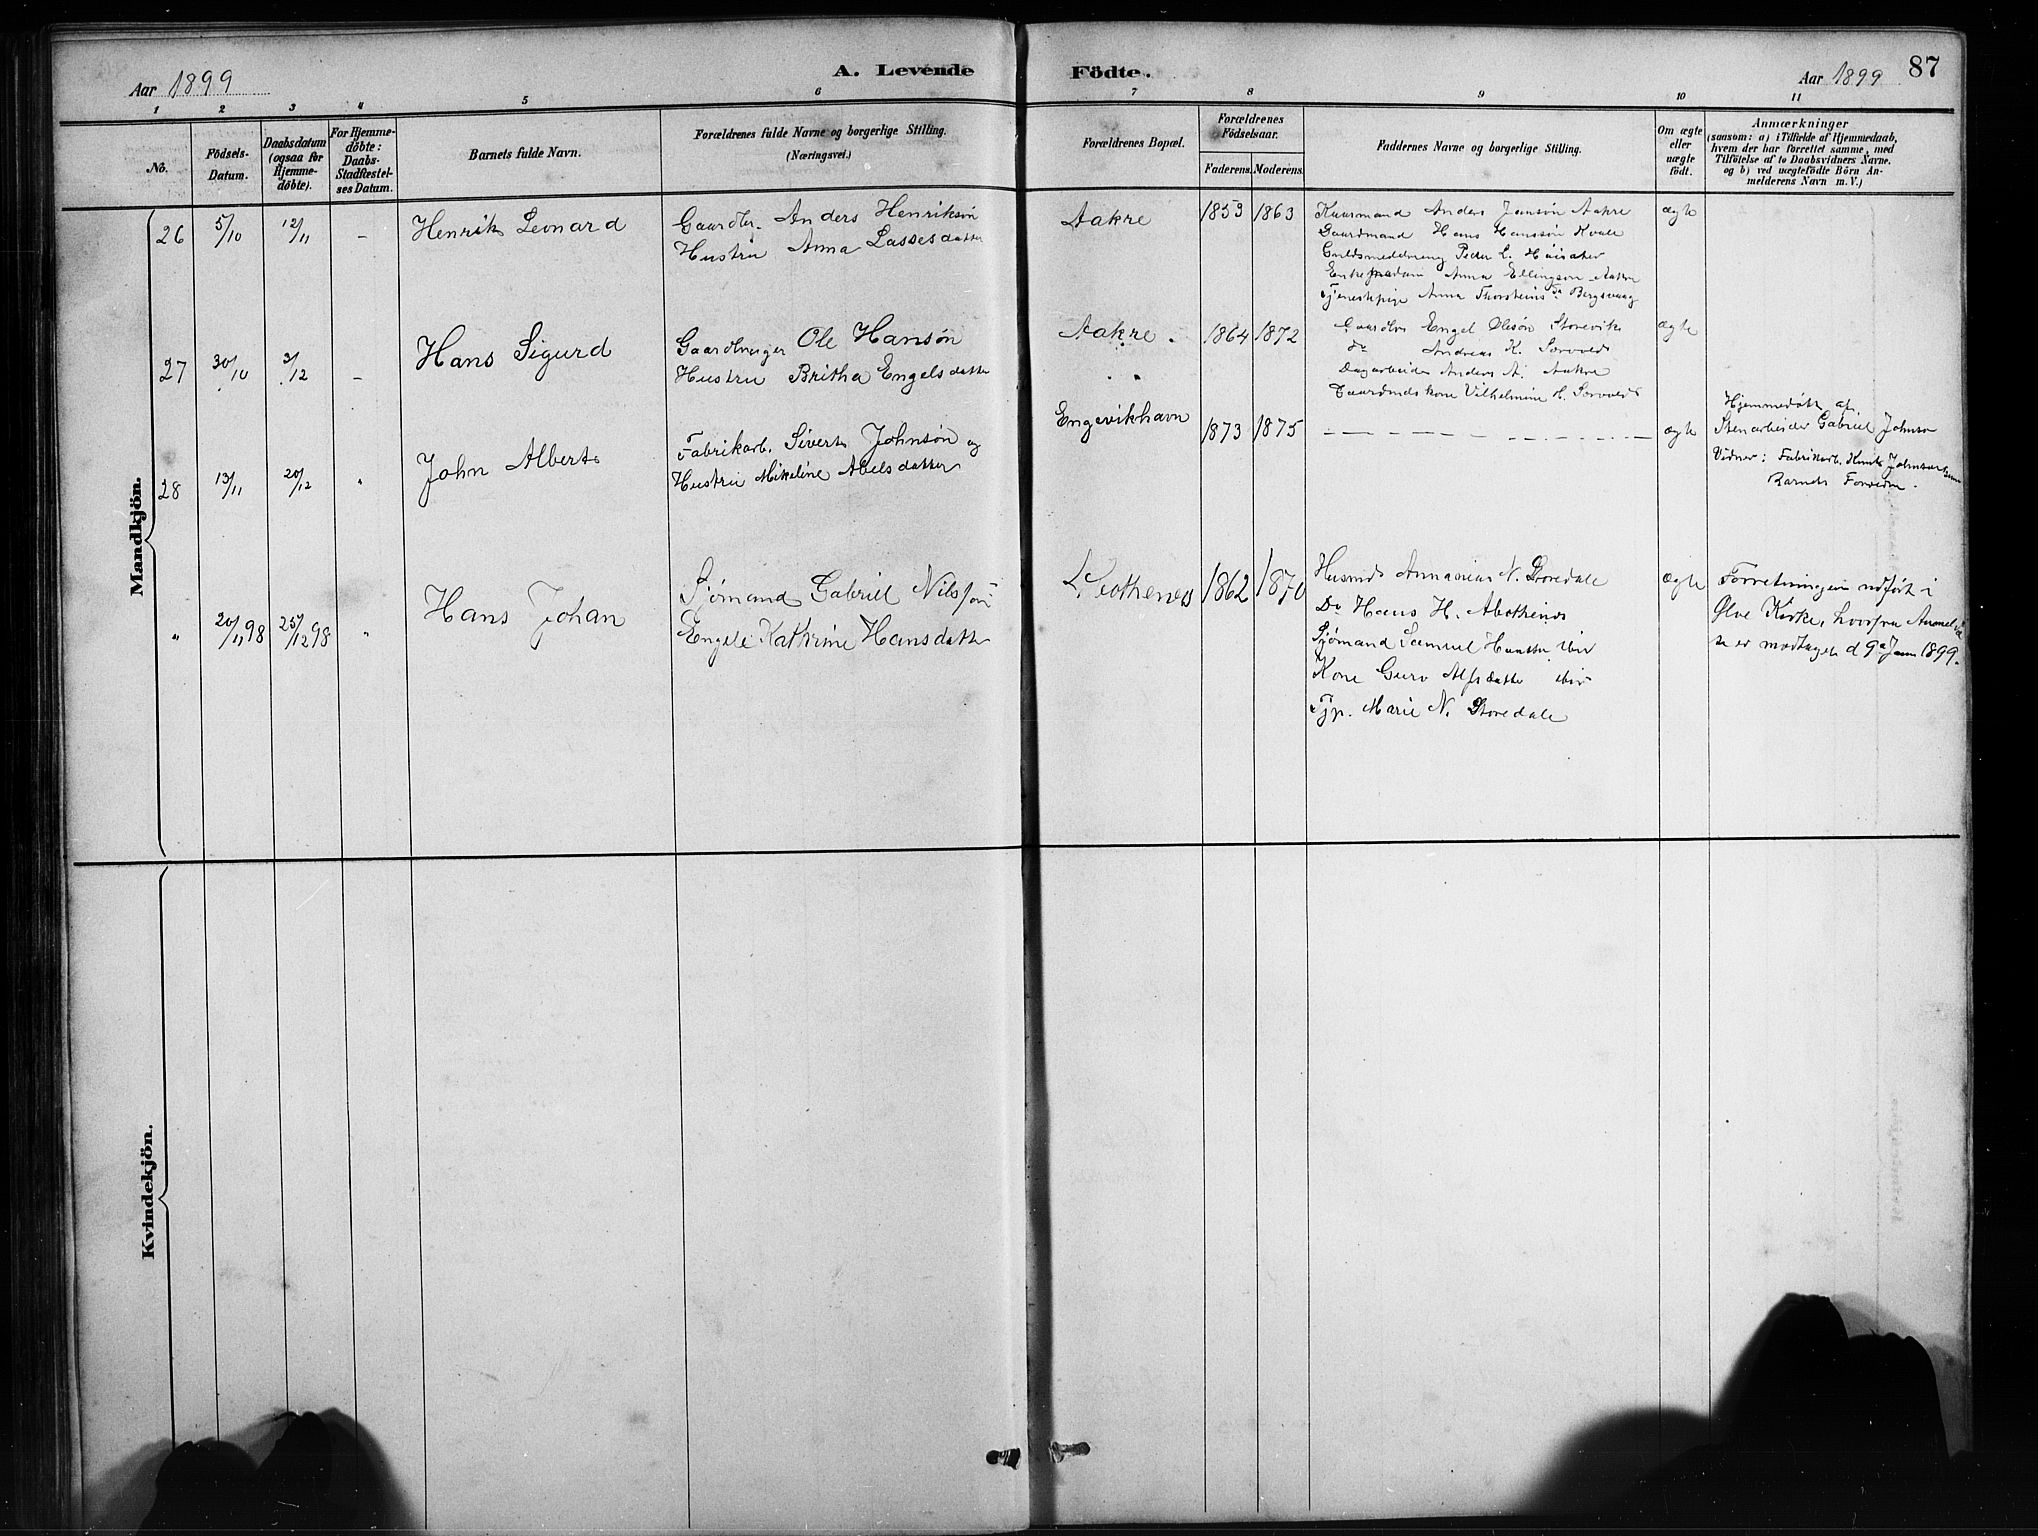 Aar 1899
A. Levende Födte.
Aar 1899
87
1 2 3 4 5 6 7 8 9 10 11
No.
Födsels-
Datum.
Daabsdatum
(ogsaa for
Hjemme-
döbte).
For Hjemme-
döbte:
Daabs-
Stadfæstel-
ses Datum.
Barnets fulde Navn.
Forældrenes fulde Navne og borgerlige Stilling.
(Næringsvei.)
Forældrenes Bopæl.
Forældrenes
Födselsaar.
Faderens. Moderens.
Faddernes Navne og borgerlige Stilling.
Om ægte
eller
uægte
født.
Anmærkninger
(saasom: a) i Tilfælde af Hjemmedaab,
hvem der har forrettet samme, med
Tilföielse af to Daabsvidners Navne.
og b) ved uægtefödte Börn An-
melderens Navn m. V.)
Mandkjön.
26 5/10 12/11 –
Henrik Leonard
Gaardbr. Anders Henriksøn
Hustru Anna Lassesdatter
Aakre
1853 1863
Kaarmand Anders Jansøn Aakre
Gaardmand Hans Hanssøn Kvale
Peder L.
Anna Ellingsøn Aakre
Tjenestepige Anna Thorsteins Da Bergsvaag
ægte
27 30/10 3/12 –
Hans Sigurd
Gaardbruger Ole Hansøn
Hustru Britha Engelsdatter
Aakre.
1864 1872
Gaardbr Engel Olsøn Storevik
do Andreas K.
Dagarbeider Anders A. Aakre
Gaardmdskone Vilhelmine H.
ægte
28 13/11 20/12 "
John Albert
Fabrikarb. Sivert Johnsøn og
Hustru Mikeline Abelsdatter
Engevikhavn
1873 1875
ægte
Hjemmedøbt af
Stenarbeider Gabriel Johnsø
Vidner: Fabrikarb. Knut
Barnets Forældre.
" 20/11 98 25/12 98 "
Hans Johan
Sjømand Gabriel Nilssøn
Engele Kathrine Hansdatter
1862 1870
Husmd N. Storedale
Do Hans H.
Sjømand Samuel ibid
Kone Guro Alfsdatter ibid
Tjp. Marie N. Storedale
ægte
Forretningen udført i
Ølve Kirke, hvorfra Anmeldel
se er modtaget d 9de Janr 1899.
Kvindekjön.